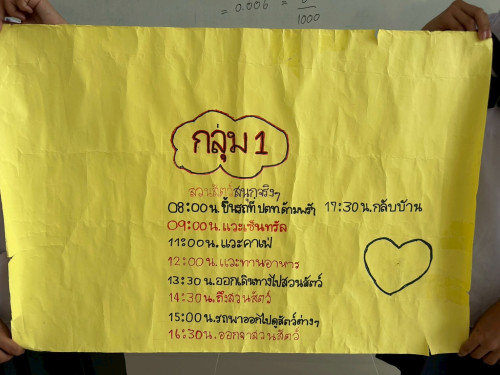 = 0.006 = 6/1000
กลุ่ม 1
สวนสัตว์สนุกจริงๆ
08:00 น. ขึ้นรถที่ ปตท ด้ามพร้า 17:30 น. กลับบ้าน
09:00 น. แวะเซ็นทรัล
11:00 น. แวะคาเฟ่
12:00 น. แวะทานอาหาร
13:30 น. ออกเดินทางไปสวนสัตว์
14:30 น. ถึงสวนสัตว์
15:00 น. รถพาออกไปดูสัตว์ต่างๆ
16:30 น. ออกจาสวนสัตว์